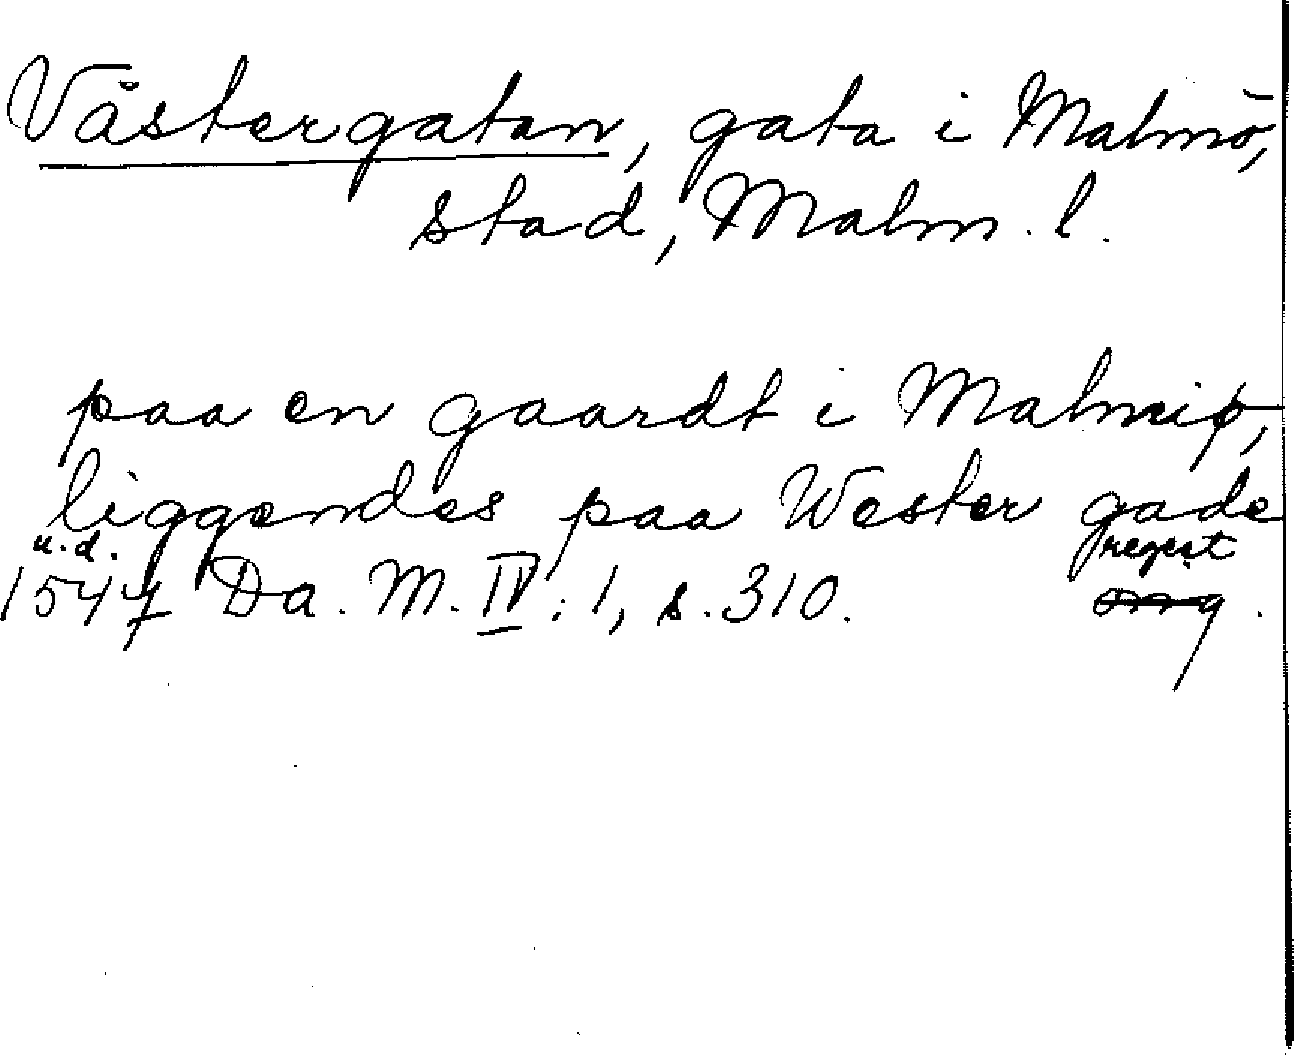 Västergatan, gata i Malmö,
stad, Malm. l.
paa en gaardt i Malmiø,
liggendes paa Wester gade
u.d. regest
1547 Da. M. IV: 1, s. 310. or̶i̶g̶.